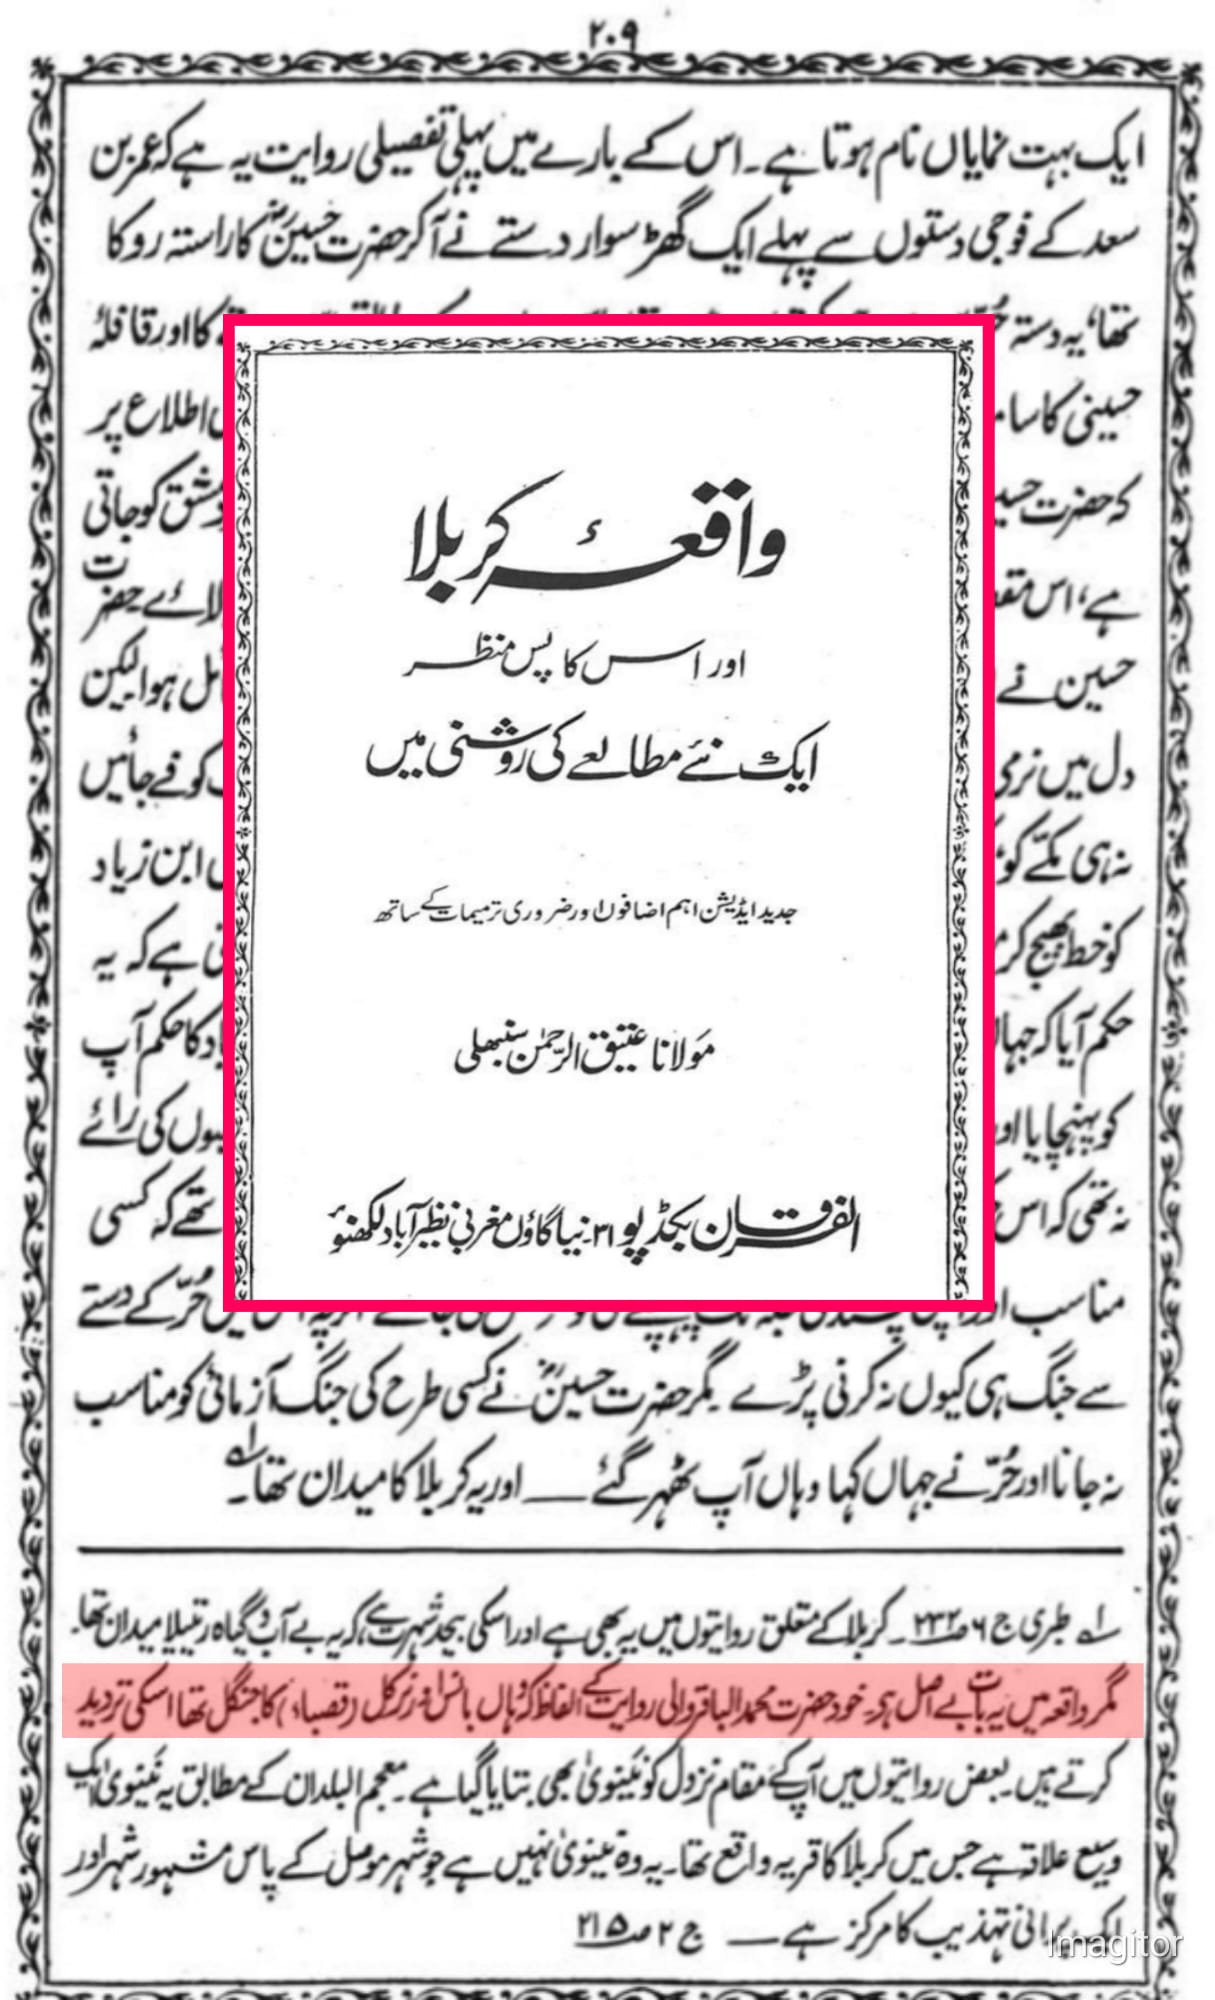 ۲۰۹
ایک بہت نمایاں نام ہوتا ہے۔ اس کے بارے میں پہلی تفصیلی روایت یہ ہے کہ عمر بن
سعد کے فوجی دستوں سے پہلے ایک گھڑ سوار دستے نے آکر حضرت حسینؓ کا راستہ روکا
تھا، یہ دستہ کا اور قافلۂ
حسینی کا اطلاع پر
کہ حضرت دمشق کو جاتی
ہے، اس حضرت
حسین نے ہوا لیکن
دل میں نرمی کوفے جائیں
نہ ہی مکّے کو ابن زیاد
کو خط بھیج کر ہے کہ یہ
حکم آیا کہ کا حکم آپ
کو پہنچایا کی رائے
نہ تھی کہ اس تھے کہ کسی
مناسب حُرّ کے دستے
سے جنگ ہی کیوں نہ کرنی پڑے۔ مگر حضرت حسینؓ نے کسی طرح کی جنگ آزمائی کو مناسب
نہ جانا اور حُرّ نے جہاں کہا وہاں آپ ٹھہر گئے ــــ اور یہ کربلا کا میدان تھا۔ ؎۱
؎۱ طبری ج ۶ ص ۲۳۲۔ کربلا کے متعلق روایتوں میں یہ بھی ہے اور اسکی بیحد شہرت ہے کہ یہ بے آب و گیاہ رتیلا میدان تھا۔
مگر واقعہ میں یہ بات بے اصل ہے۔ خود حضرت محمد الباقر والی روایت کے الفاظ کہ وہاں بانس اور نرکل (قصباء) کا جنگل تھا اسکی تردید
کرتے ہیں۔ بعض روایتوں میں آپ کے مقام نزول کو نینویٰ بھی بتایا گیا ہے۔ معجم البلدان کے مطابق یہ نینویٰ ایک
وسیع علاقہ ہے جس میں کربلا کا قریہ واقع تھا۔ یہ وہ نینویٰ نہیں ہے جو شہر موصل کے پاس مشہور شہر اور
ایک پرانی تہذیب کا مرکز ہے ــــ ج ۲ ص ۲۱۵
واقعۂ کربلا
اور اس کا پس منظر
ایک نئے مطالعے کی روشنی میں
جدید ایڈیشن اہم اضافوں اور ضروری ترمیمات کے ساتھ
مولانا عتیق الرحمٰن سنبھلی
الفرقان بکڈپو ۳۱۔ نیا گاؤں مغربی نظیر آباد لکھنؤ
Imagitor